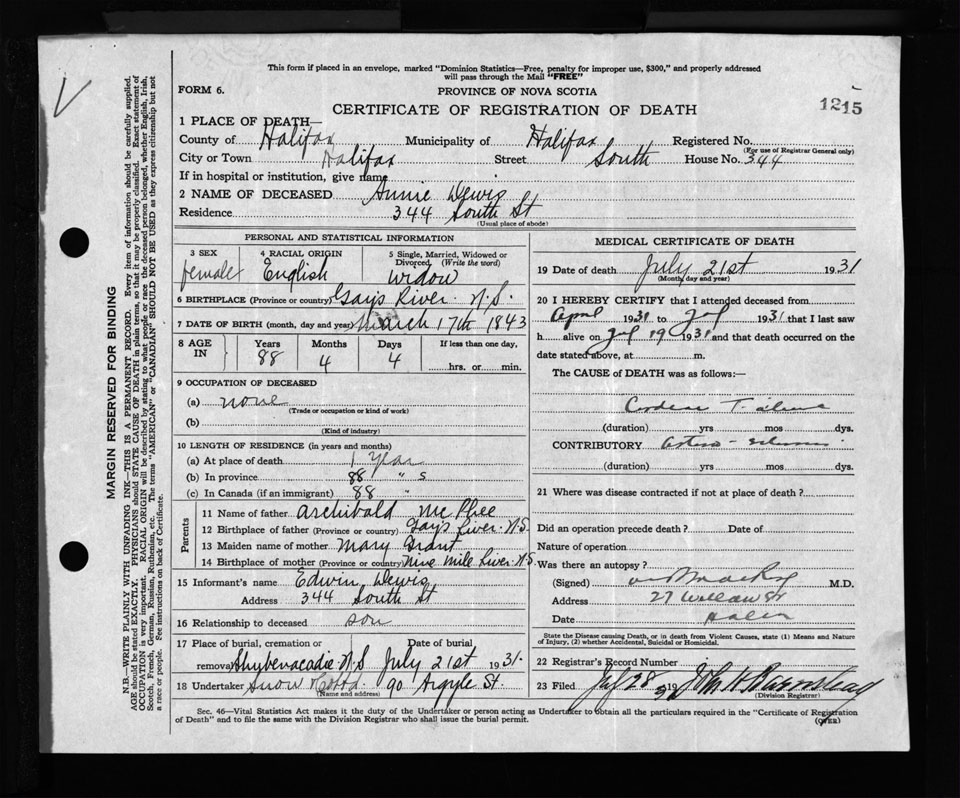 This form if placed in an envelope, marked "Dominion Statistics—Free, penalty for improper use, $300," and properly addressed
will pass through the Mail "FREE"
FORM 6.
PROVINCE OF NOVA SCOTIA
CERTIFICATE OF REGISTRATION OF DEATH
1215
1 PLACE OF DEATH—
County of Halifax Municipality of Halifax Registered No.
(For use of Registrar General only)
City or Town Halifax Street South House No. 344
If in hospital or institution, give name
2 NAME OF DECEASED Annie Dewis
Residence 344 South St
(Usual place of abode)
PERSONAL AND STATISTICAL INFORMATION
3 SEX 4 RACIAL ORIGIN 5 Single, Married, Widowed or
Divorced (Write the word)
female English widow
6 BIRTHPLACE (Province or country) Gays River N.S.
7 DATE OF BIRTH (month, day and year) March 17th 1843
8 AGE IN Years Months Days If less than one day,
88 4 4 hrs. or min.
9 OCCUPATION OF DECEASED
(a) none
(Trade or occupation or kind of work)
(b)
(Kind of industry)
10 LENGTH OF RESIDENCE (in years and months)
(a) At place of death 1 Year
(b) In province 88 " s
(c) In Canada (if an immigrant) 88 "
Parents
11 Name of father Archibald McPhee
12 Birthplace of father (Province or country) Gays River. N.S.
13 Maiden name of mother Mary Grant
14 Birthplace of mother (Province or country) Nine Mile River. N.S.
15 Informant's name Edwin Dewis
Address 344 South St
16 Relationship to deceased son
17 Place of burial, cremation or Date of burial
removal Shubenacadie N.S July 21st 1931.
18 Undertaker Snow 90 Argyle St.
(Name and address)
MEDICAL CERTIFICATE OF DEATH
19 Date of death July 21st 1931
(Month, day and year)
20 I HEREBY CERTIFY that I attended deceased from
April 1931 to Jul 1931 that I last saw
h alive on Jul 19 1931 and that death occurred on the
date stated above, at m.
The CAUSE of DEATH was as follows:—
(duration) yrs mos dys.
CONTRIBUTORY
(duration) yrs mos dys.
21 Where was disease contracted if not at place of death?
Did an operation precede death? Date of
Nature of operation
Was there an autopsy?
(Signed) M.D.
Address 27 Willow St
Date
State the Disease causing Death, or in death from Violent Causes, state (1) Means and Nature
of Injury, (2) whether Accidental, Suicidal or Homicidal.
22 Registrar's Record Number
23 Filed July 28 1931 John H Barnstead
(Division Registrar)
Sec. 46—Vital Statistics Act makes it the duty of the Undertaker or person acting as Undertaker to obtain all the particulars required in the "Certificate of Registration
of Death" and to file the same with the Division Registrar who shall issue the burial permit.
(OVER)
MARGIN RESERVED FOR BINDING
N.B.—WRITE PLAINLY WITH UNFADING INK—THIS IS A PERMANENT RECORD. Every item of information should be carefully supplied.
AGE should be stated EXACTLY. PHYSICIANS should STATE CAUSE OF DEATH in plain terms, so that it may be properly classified. Exact statement of
OCCUPATION is very important. RACIAL ORIGIN will be described by stating to what people or race the deceased person belonged, whether English, Irish,
Scotch, French, German, Russian, Ruthenian, etc. The terms "AMERICAN" or "CANADIAN" SHOULD NOT BE USED as they express citizenship but not
a race or people. See instructions on back of Certificate.